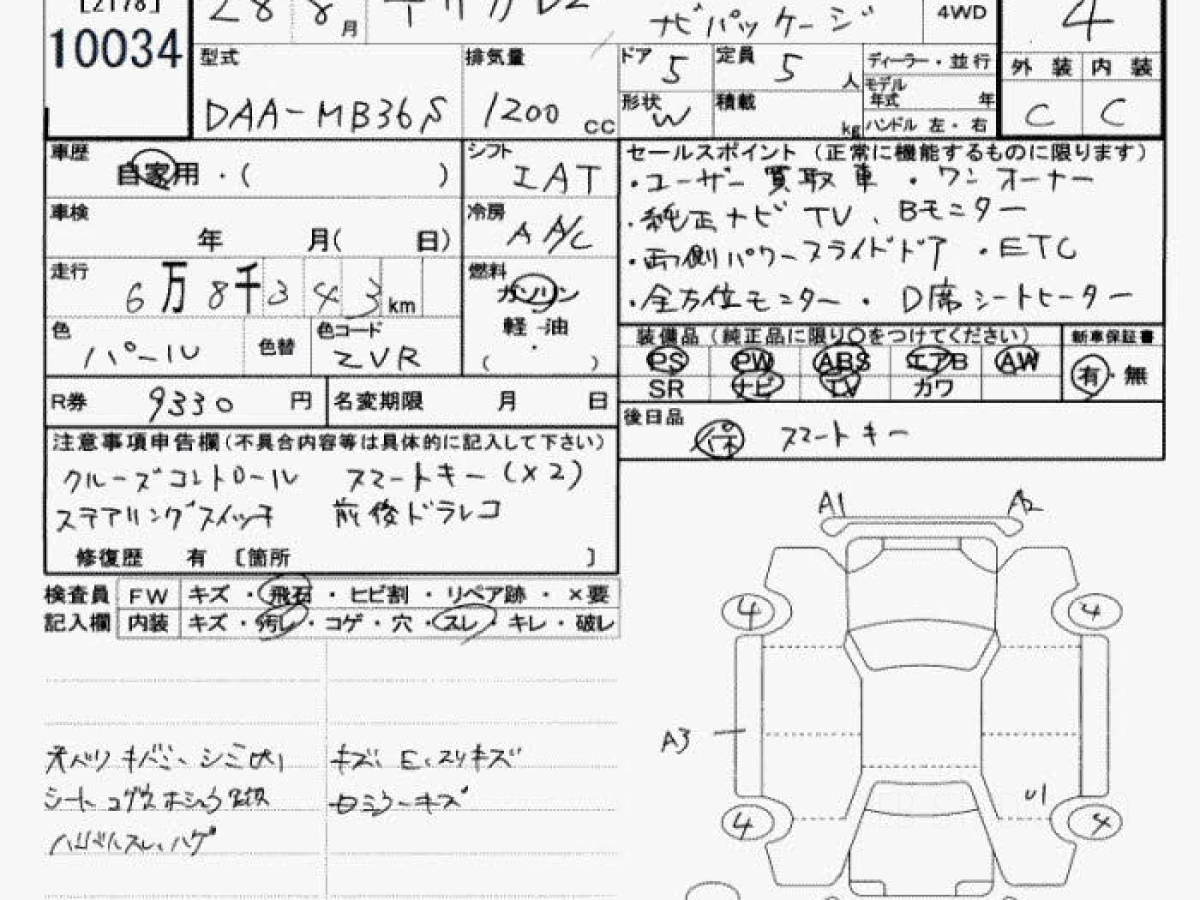 [2178]
10034
28 8月 デリカD2
ナビパッケージ 4WD 4
型式 DAA-MB36S
排気量 1200 cc
ドア 5 定員 5 人
形状 W 積載 kg
ディーラー・並行
モデル年式 年
ハンドル 左・右
外装 内装
C C
車歴 自家用・( )
シフト IAT
車検 年 月( 日)
冷房 AA/C
走行 6万8千343km
燃料 ガソリン
軽油
・
( )
色 パール 色替 色コード ZVR
R券 9330 円 名変期限 月 日
セールスポイント(正常に機能するものに限ります)
・ユーザー買取車 ・ワンオーナー
・純正ナビ TV、Bモニター
・両側パワースライドドア ・ETC
・全方位モニター・D席シートヒーター
装備品(純正品に限り○をつけてください) 新車保証書
PS PW ABS エアB AW 有・無
SR ナビ TV カワ
後日品 保 スマートキー
注意事項申告欄(不具合内容等は具体的に記入して下さい)
クルーズコントロール スマートキー(×2)
ステアリングスイッチ 前後ドラレコ
修復歴 有 〔箇所 〕
検査員 FW キズ・飛石・ヒビ割・リペア跡・×要
記入欄 内装 キズ・汚レ・コゲ・穴・スレ・キレ・破レ
キズ、E、スリキズ
シート
ミラーキズ
A1 A2
4 4
A3
U1
4 4